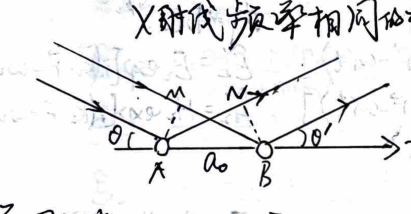 X射线频率相同的
M
N
θ
θ'
A
a₀
B